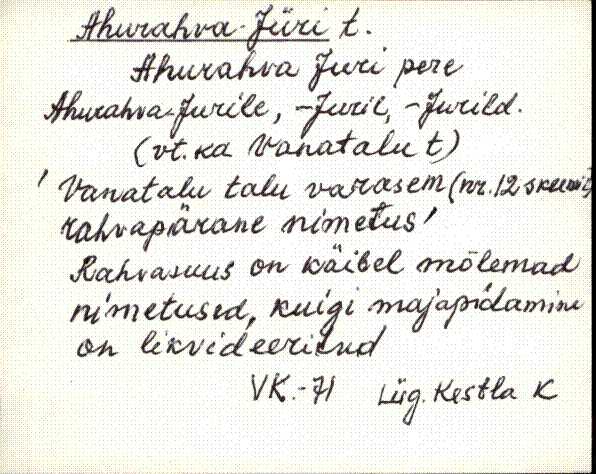 Ahurahva-Jüri t.
Ahurahva Juri pere
Ahurahva-Jurile, -Juril, -Jurild.
(vt. ka Vanatalu t)
' Vanatalu talu varasem (nr. 12 skeemil)
rahvapärane nimetus'
Rahvasuus on käibel mõlemad
nimetused, kuigi majapidamine
on likvideeritud
VK.-71 Lüg. Kestla K